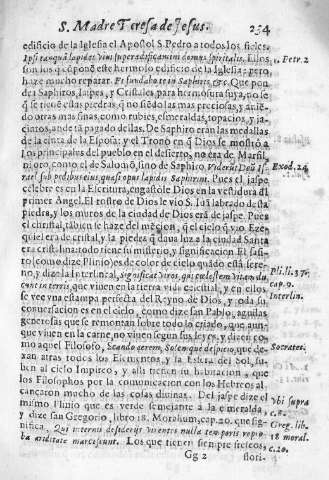 S. Madre Teresa de Jesus. 234
edificio de la Iglesia el Apostol S. Pedro a todos los fieles.
Ipsi tanquã lapides vivi superædificamini domus spiritalis. Ellos
1. Petr. 2
son los que cõponẽ este hermoso edificio de la Iglesia: pero,
hace mucho reparar. Et fundabo te in Saphiris, &c. Que pon-
dra Saphiros, Iaspes, y Cristales para hermosura suya, no se
q̃ se tiene estas piedras, q̃ no siẽdo las mas preciosas, y aviẽ-
do otras mas finas, como rubies, esmeraldas, topacios, y ja-
cintos, ande tã pagado dellas. De Saphiro eran las medallas
de la cinta de la Esposa: y el Trono en q̃ Dios se mostrò a
los principales del pueblo en el desierto, no era de Marfil,
ni oro, como el de Salomõ, sino de Saphiro. Viderũt Deũ Is-
Exod. 24.
rael sub pedibus eius, quasi opus lapidis Saphirini. Pues el jaspe
celebre es en la Escritura, engastòle Dios en la vestidura del
primer Angel. El rostro de Dios le vio S. Iuã labrado desta
piedra, y los muros de la ciudad de Dios erã de jaspe. Pues
el christal, tãbien le haze del mesmo, q̃ el cielo q̃ vio Eze-
quiel era de cristal, y la piedra q̃ dava luz a la ciudad Santa
era cristalina: todo tiene su misterio, y significacion. El Safi-
ro (como dize Plinio) es de color de cielo quãdo està sere-
Pli. li. 37.
no, y dize la Interlineal, Significat viros, qui cælestem vitam du-
cap. 9.
cunt in terris, que viven en la tierra vida celestial, y en ellos
Interlin.
se vee vna estampa perfecta del Reyno de Dios, y toda su
conversacion es en el cielo, como dize san Pablo, aguilas
generosas que se remontan sobre todo lo criado, que aun-
que viven en la carne, no viven segun sus leyes, y dizen co-
mo aquel Filosofo,
Socrates.
xan atras todos los Elementos, y la Esfera del Sol, su-
ben al cielo Impireo, y alli tienen su habitacion, a que
los Filosophos por la comunicacion con los Hebreos al-
cançaron mucho de las cosas divinas. Del jaspe dize el
mismo Plinio que es verde semejante a la esmeralda,
Vbi supra
c. 8.
y dize san Gregorio, libro 18. Moralium, cap. 20. que sig-
Greg. lib.
nifica. Qui interni desiderij viventes nulla temporis repro-
18 moral.
ba ariditate marcescunt. Los que tienen siempre frescos,
c. 20.
Gg 2 flori-